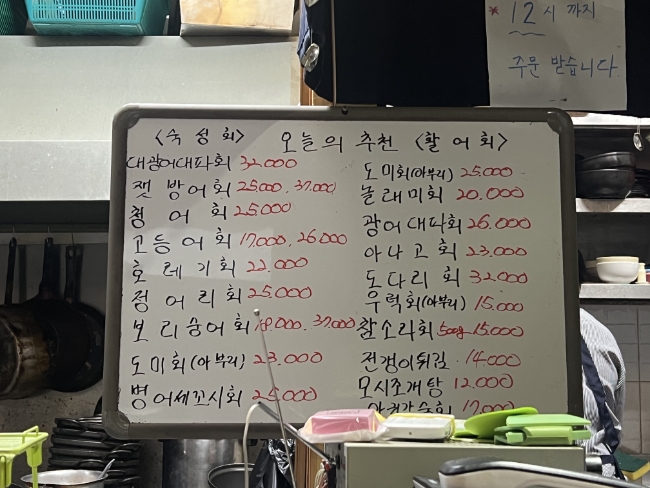 * 12시 까지
주문 받습니다
오늘의 추천
<숙성회>
대광어대파회 32.000
잿방어회 25.000. 37.000
청어회 25.000
고등어회 17.000. 26.000
호레기회 22.000
정어리회 25.000
보리숭어회 18.000. 37.000
도미회(아부리) 23.000
병어세꼬시회 25.000
<활어회>
도미회(아부리) 25.000
놀래미회 20.000
광어대파회 26.000
아나고회 23.000
도다리회 32.000
우럭회(아부리) 15.000
참소라회 500g 15.000
전갱이튀김 14.000
모시조개탕 12.000
17.000